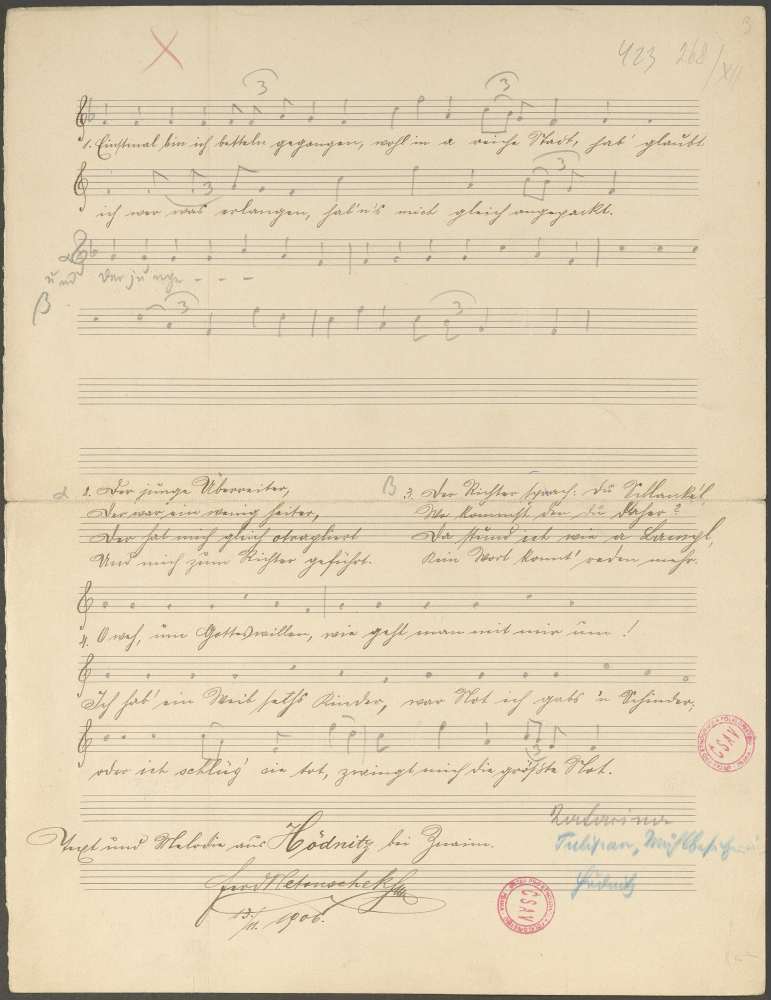 B
423 268/XII
3 3
1. Einstmal bin ich betteln gegangen, wohl in a reiche Stadt, hab' glaubt
3 3
ich wer was erlangen, hab'n's mich gleich angepackt.
α
und der junge - - -
β 3 3
α 2. Der junge Überreiter,
Der war ein wenig heiter,
Der hat mich gleich atrapliert
Und mich zum Richter geführt.
β 3. Der Richter sprach: Du Schlankel,
Wo kommst den du daher?
Da stund ich wie a
Kein Wort konnt' reden mehr.
4. O weh, um Gotteswillen, wie geht man mit mir um!
Ich hab' ein Weib sechs Kinder, vor Not ich gab's 'n Schinder,
3
oder ich schlüg' sie tot, zwingt mich die größte Not.
Text und Melodie aus Hödnitz bei Znaim.
Katarina
Tulipan,
Hödnitz
Ferd
13/11. 1906.
ČSAV
ČSAV